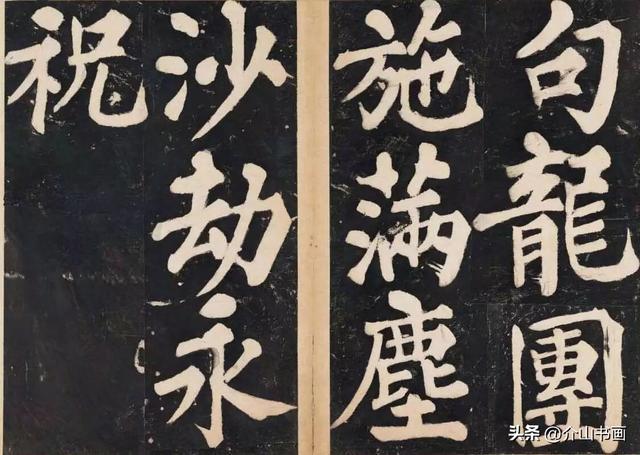 句龍團
施滿塵
沙劫永
祝
头条 @介山书画